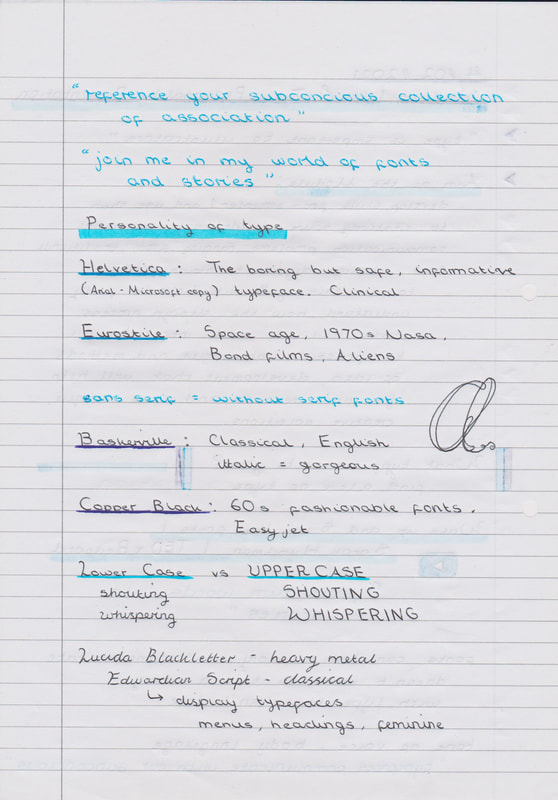 "reference your subconcious collection
of association"
"join me in my world of fonts
and stories"
Personality of type
Helvetica : The boring but safe, informative
(Arial - Microsoft copy) typeface. Clinical
Eurostile : Space age, 1970s Nasa,
Bond films, Aliens
sans serif = without serif fonts
Baskerville : Classical, English
ittalic = gorgeous
Copper Black : 60s fashionable fonts.
Easyjet
Lower Case vs UPPER CASE
shouting SHOUTING
whispering WHISPERING
Lucida Blackletter - heavy metal
Edwardian Script - classical
↳ display typefaces
menus, headings, feminine